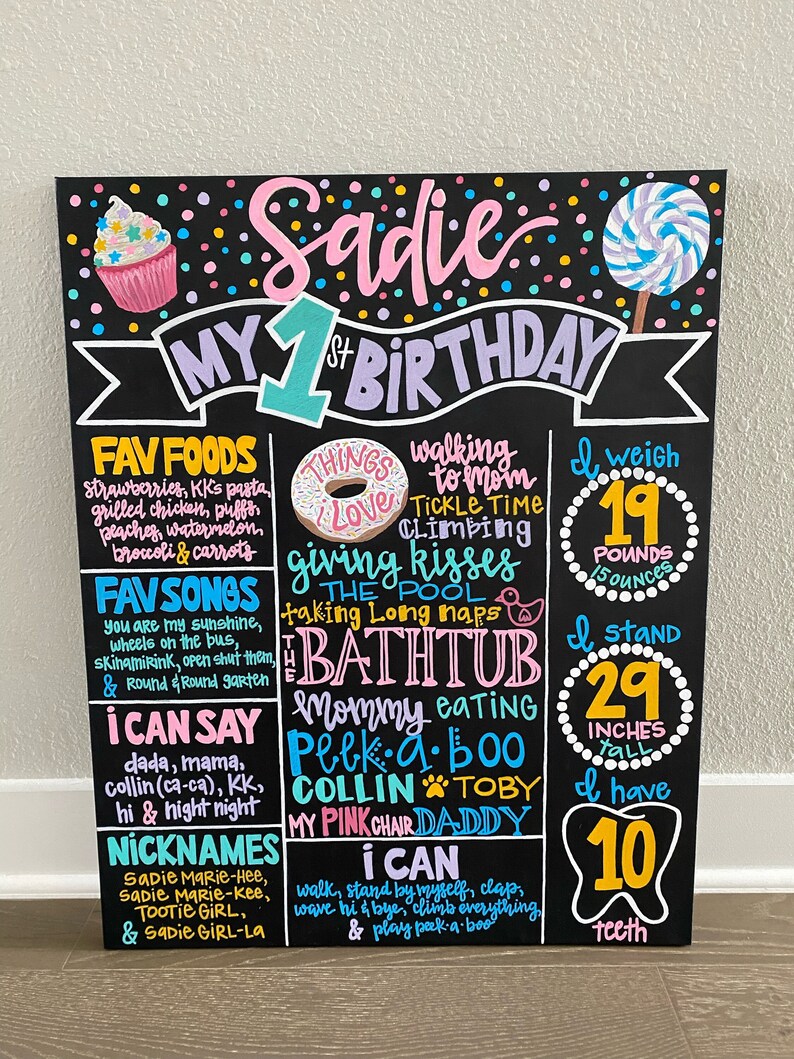 Sadie
MY 1st BiRTHDAY
FAV FOODS
strawberries, KK's pasta,
grilled chicken, puffs,
peaches, watermelon,
broccoli & carrots
FAV SONGS
you are my sunshine,
wheels on the bus,
skinamirink, open shut them,
& Round & Round garten
i CAN SAY
dada, mama,
collin (ca-ca), KK,
hi & night night
NiCKNAMES
SADiE MARiE-HEE,
SADiE MARiE-KEE,
TOOTiE GiRL,
& SADiE GiRL-LA
THINGS
i LOVE
walking
to Mom
TiCKLE TiME
CLiMBiNG
giving kisses
THE POOL
taking Long naps
THE BATHTUB
Mommy eating
Peek·a·boo
COLLIN TOBY
MY PINK CHAIR DADDY
i CAN
walk, stand by myself, clap,
wave hi & bye, climb everything,
& play peek·a·boo
I weigh
19
POUNDS
15 OUNCES
I stand
29
iNCHES
tall
I have
10
teeth